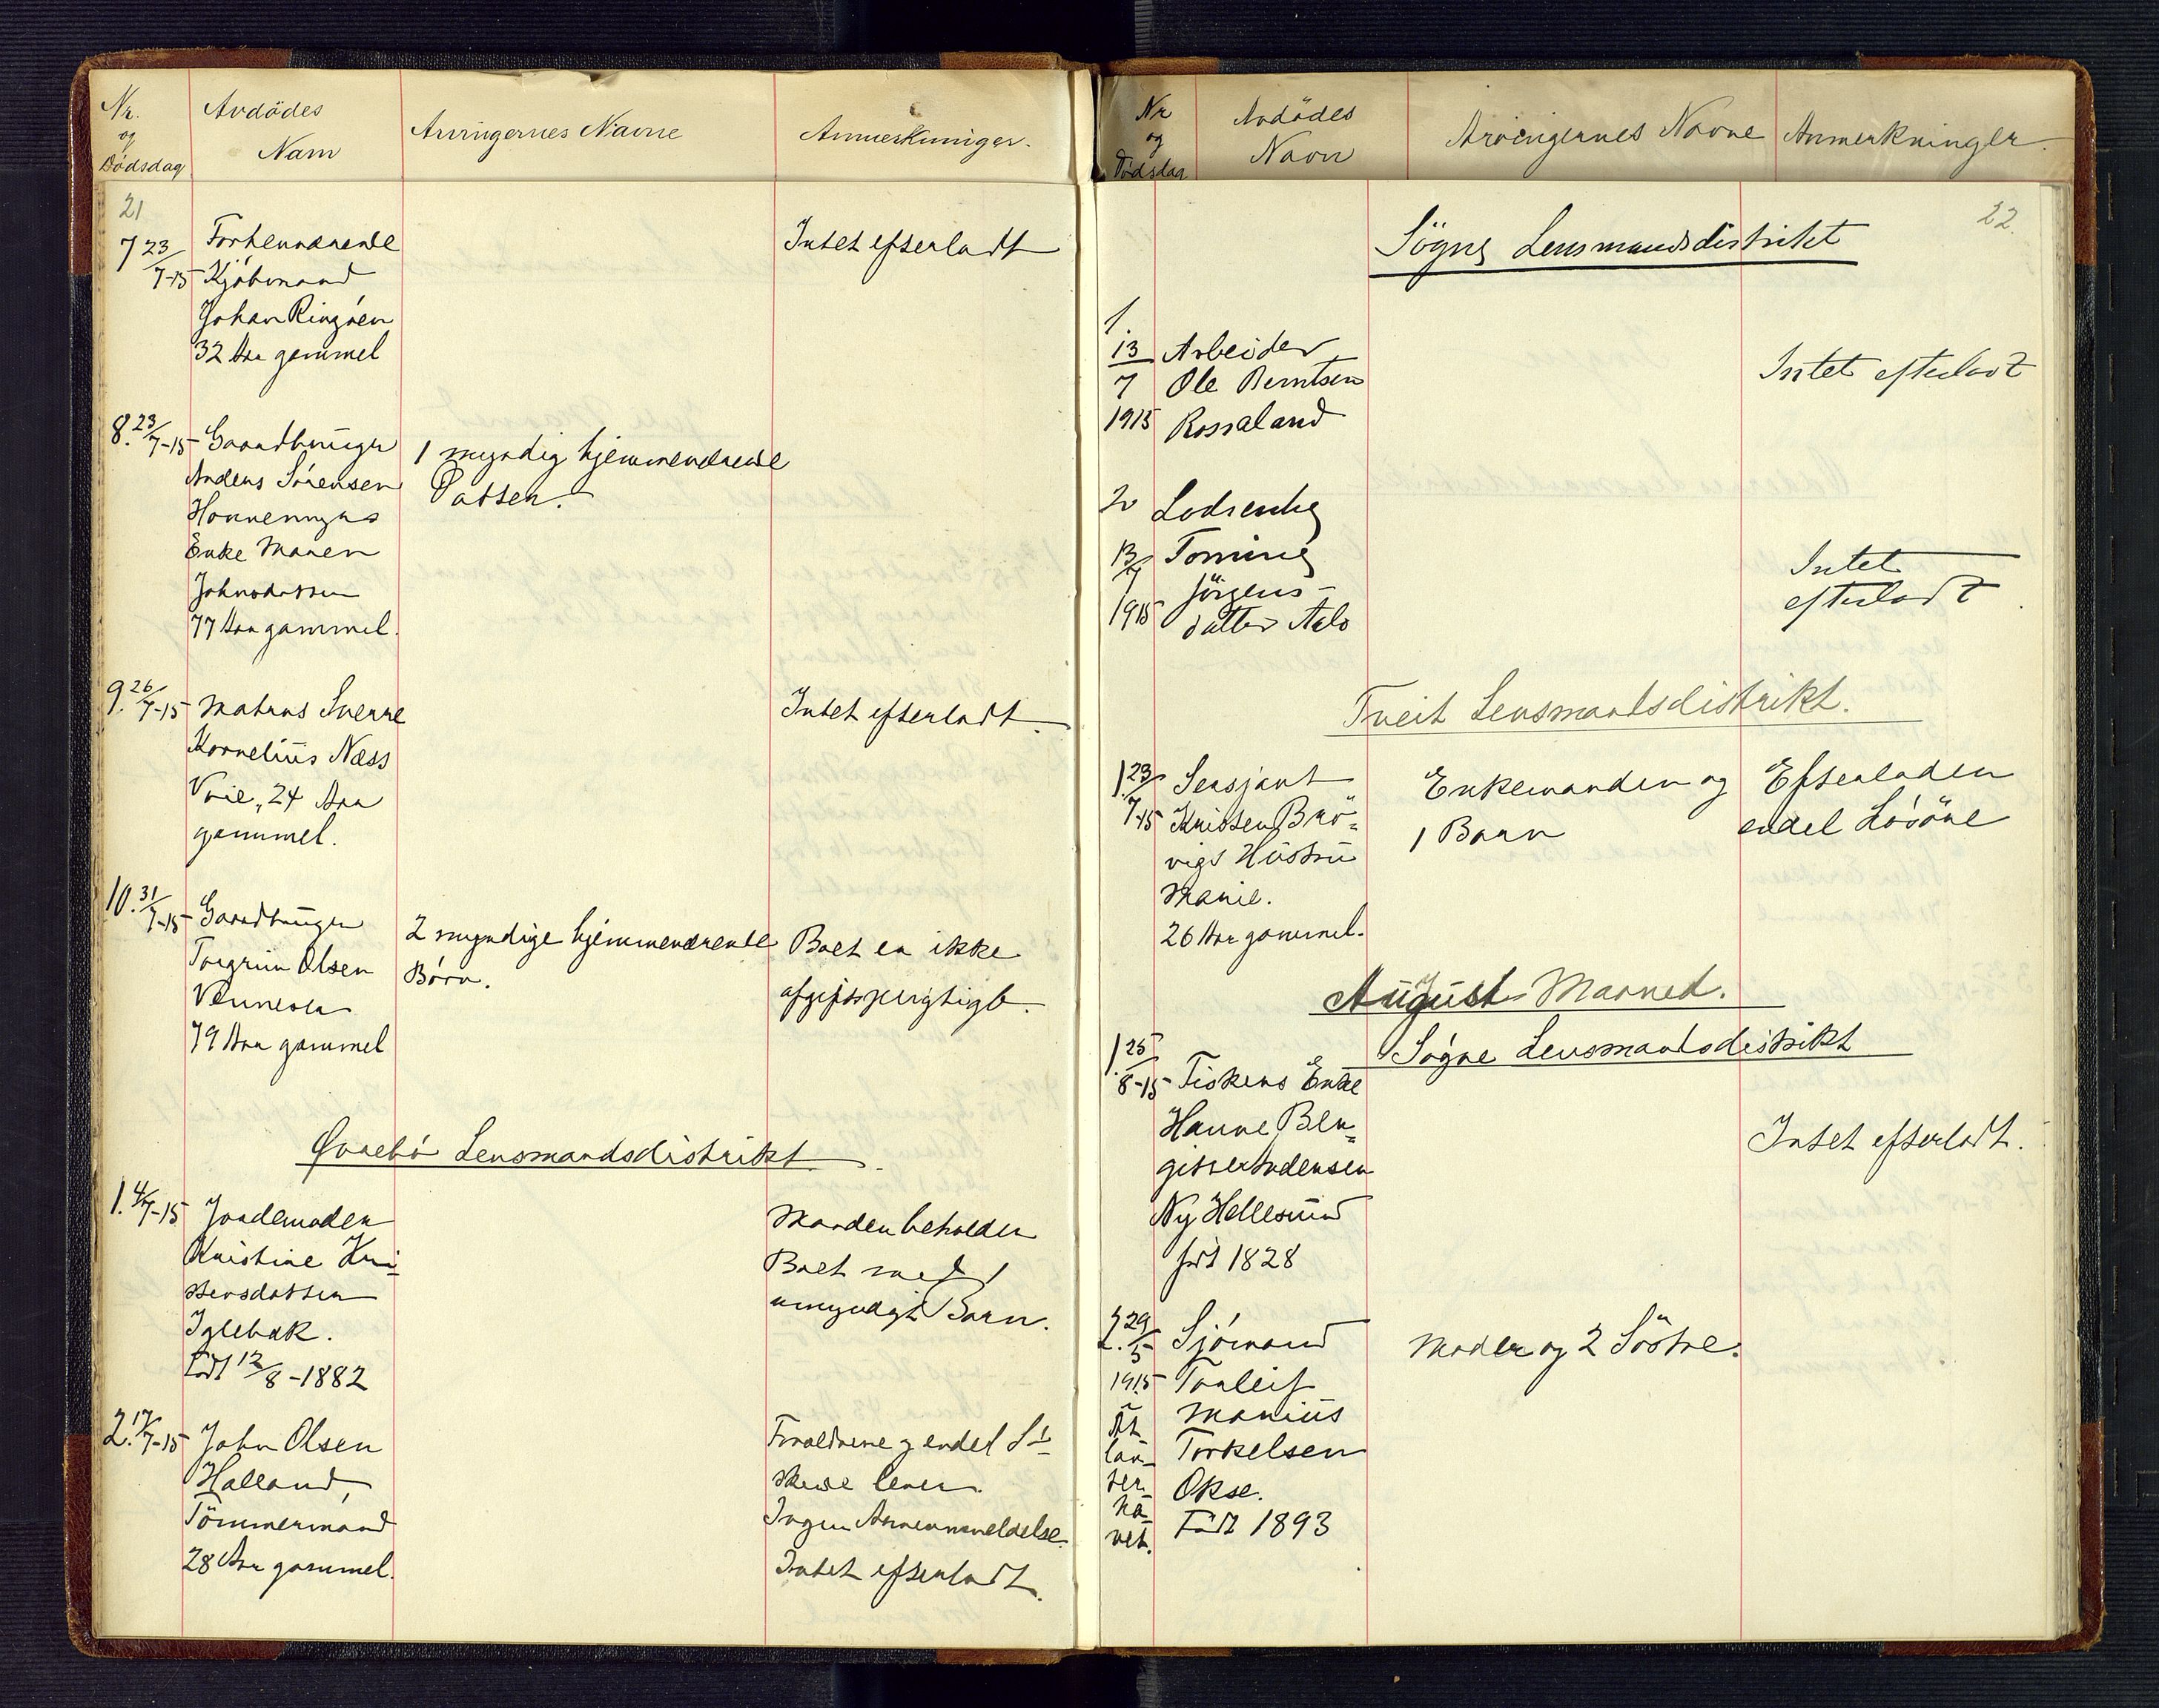 Nr. og Dödsdag
Avdödes Navn
Arvingernes Navne
Anmerkninger.
21
7 23/7-15 Forhenværende
Kjöbmand
Johan Ringöen
32 Aar gammel
Intet efterladt
8. 23/7-15 Gaardbruger
Anders Sörensen
Enke Maren
Johnsdatter
77 Aar gammel.
1 myndig hjemmeværende
Datter.
9. 26/7-15 Mathias Sverre
Kornelius Næss
Voie, 24 Aar
gammel.
Intet efterladt.
10. 31/7-15 Gaardbruger
Torgrim Olsen
Vennesla
79 Aar gammel
2 myndige hjemmeværende
Börn.
Boet er ikke
afgiftspligtigt.
Øvrebö Lensmandsdistrikt.
1. 4/7-15 Jordemoder
Kristine Kri-
stensdatter
Iglebæk.
Född 12/8-1882
Manden beholder
Boet med 1
umyndigt Barn.
2. 17/7-15 John Olsen
Halland,
Tömmermand
28 Aar gammel.
Forældrene og endel Sö-
skende lever.
Ingen Arveanmeldelse.
Intet efterladt.
Nr og Dödsdag
Avdödes Navn
Arvingernes Navne
Anmerkninger.
22.
Sögne Lensmandsdistrikt
1.
13/7 1915 Arbeider
Ole Berntsen
Rossaland
Intet efterladt
2 Lodsenke
13/7 1915 Tomine
Jörgens-
datter Aalo
Intet
efterladt
Tveit Lensmandsdistrikt.
1. 23/7-15 Sersjant
Kristen Brö-
vigs Hustru
Marie.
26 Aar gammel.
Enkemanden og
1 Barn
Efterladen
endel Lösöre
August Maaned.
Sögne Lensmandsdistrikt
1. 25/8-15 Fiskers Enke
Hanne Bir-
gitte Andersen
Ny Hellesund
född 1828
Intet efterladt.
2. 29/5 1915 Sjömand
Torleif
Marius
Torkelsen
Okse.
Född 1893
At-
lan-
ter-
ha-
vet.
Moder og 2 Söstre.